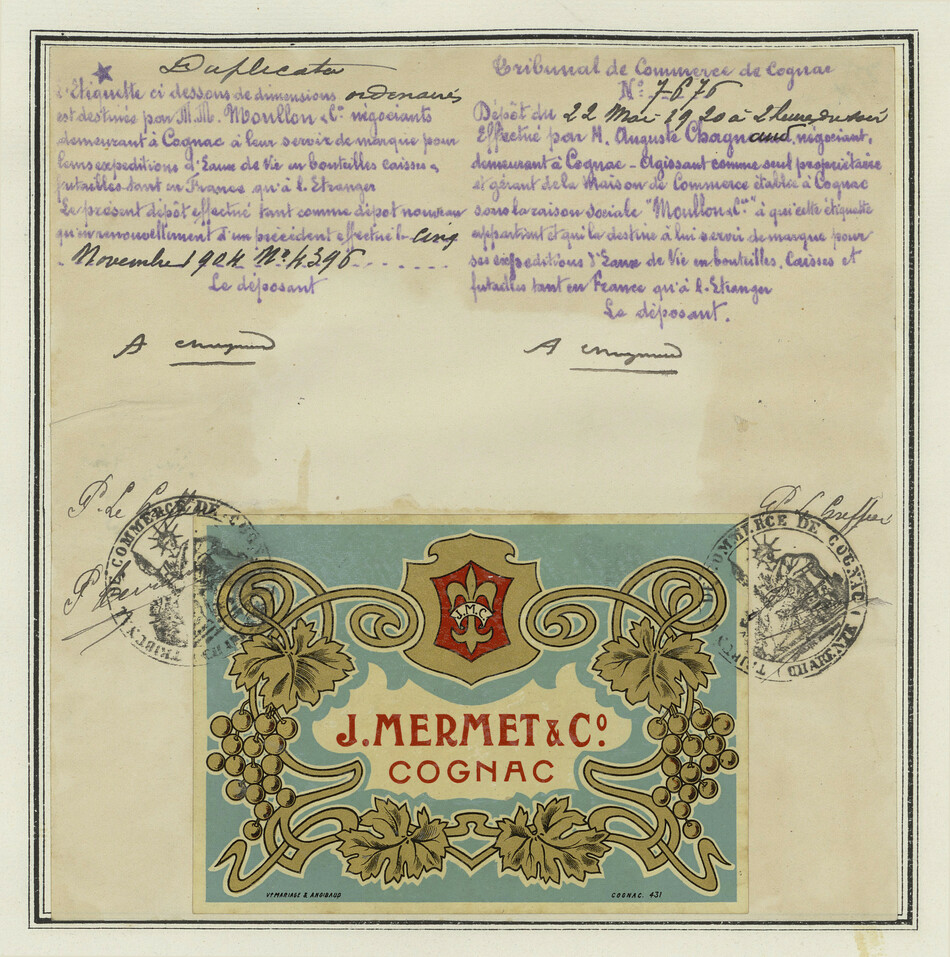 Duplicata
L'Etiquette ci dessous de dimensions ordinaires
est destinée par M.M. Moullon & Cie négociants
demeurant à Cognac à leur servir de marque pour
leurs expéditions d'Eaux de Vie en bouteilles caisses &
futailles tant en France qu'à l'Etranger
Le présent dépôt effectué tant comme dépot nouveau
qu'en renouvellement d'un précédent effectué le cinq
Novembre 1904 No 4396
Le déposant
A Chagnaud
Tribunal de Commerce de Cognac
No 7676
Dépôt du 22 Mai 1920 à 2 heures du soir
Effectué par M. Auguste Chagnaud, négociant,
demeurant à Cognac - Agissant comme seul propriétaire
et gérant de la Maison de Commerce établie à Cognac
sous la raison sociale "Moullon & Cie" à qui cette étiquette
appartient et qui la destine à lui servir de marque pour
ses expéditions d'Eaux de Vie en bouteilles, Caisses et
futailles tant en France qu'à l'Etranger
Le déposant.
A Chagnaud
P. Le Greffier
P. Le Greffier
TRIBUNAL DE COMMERCE DE COGNAC
TRIBUNAL DE COMMERCE DE COGNAC (CHARENTE)
J.M.C
J. MERMET & Co.
COGNAC
Vve MARIAGE & ANGIBAUD
COGNAC. 431